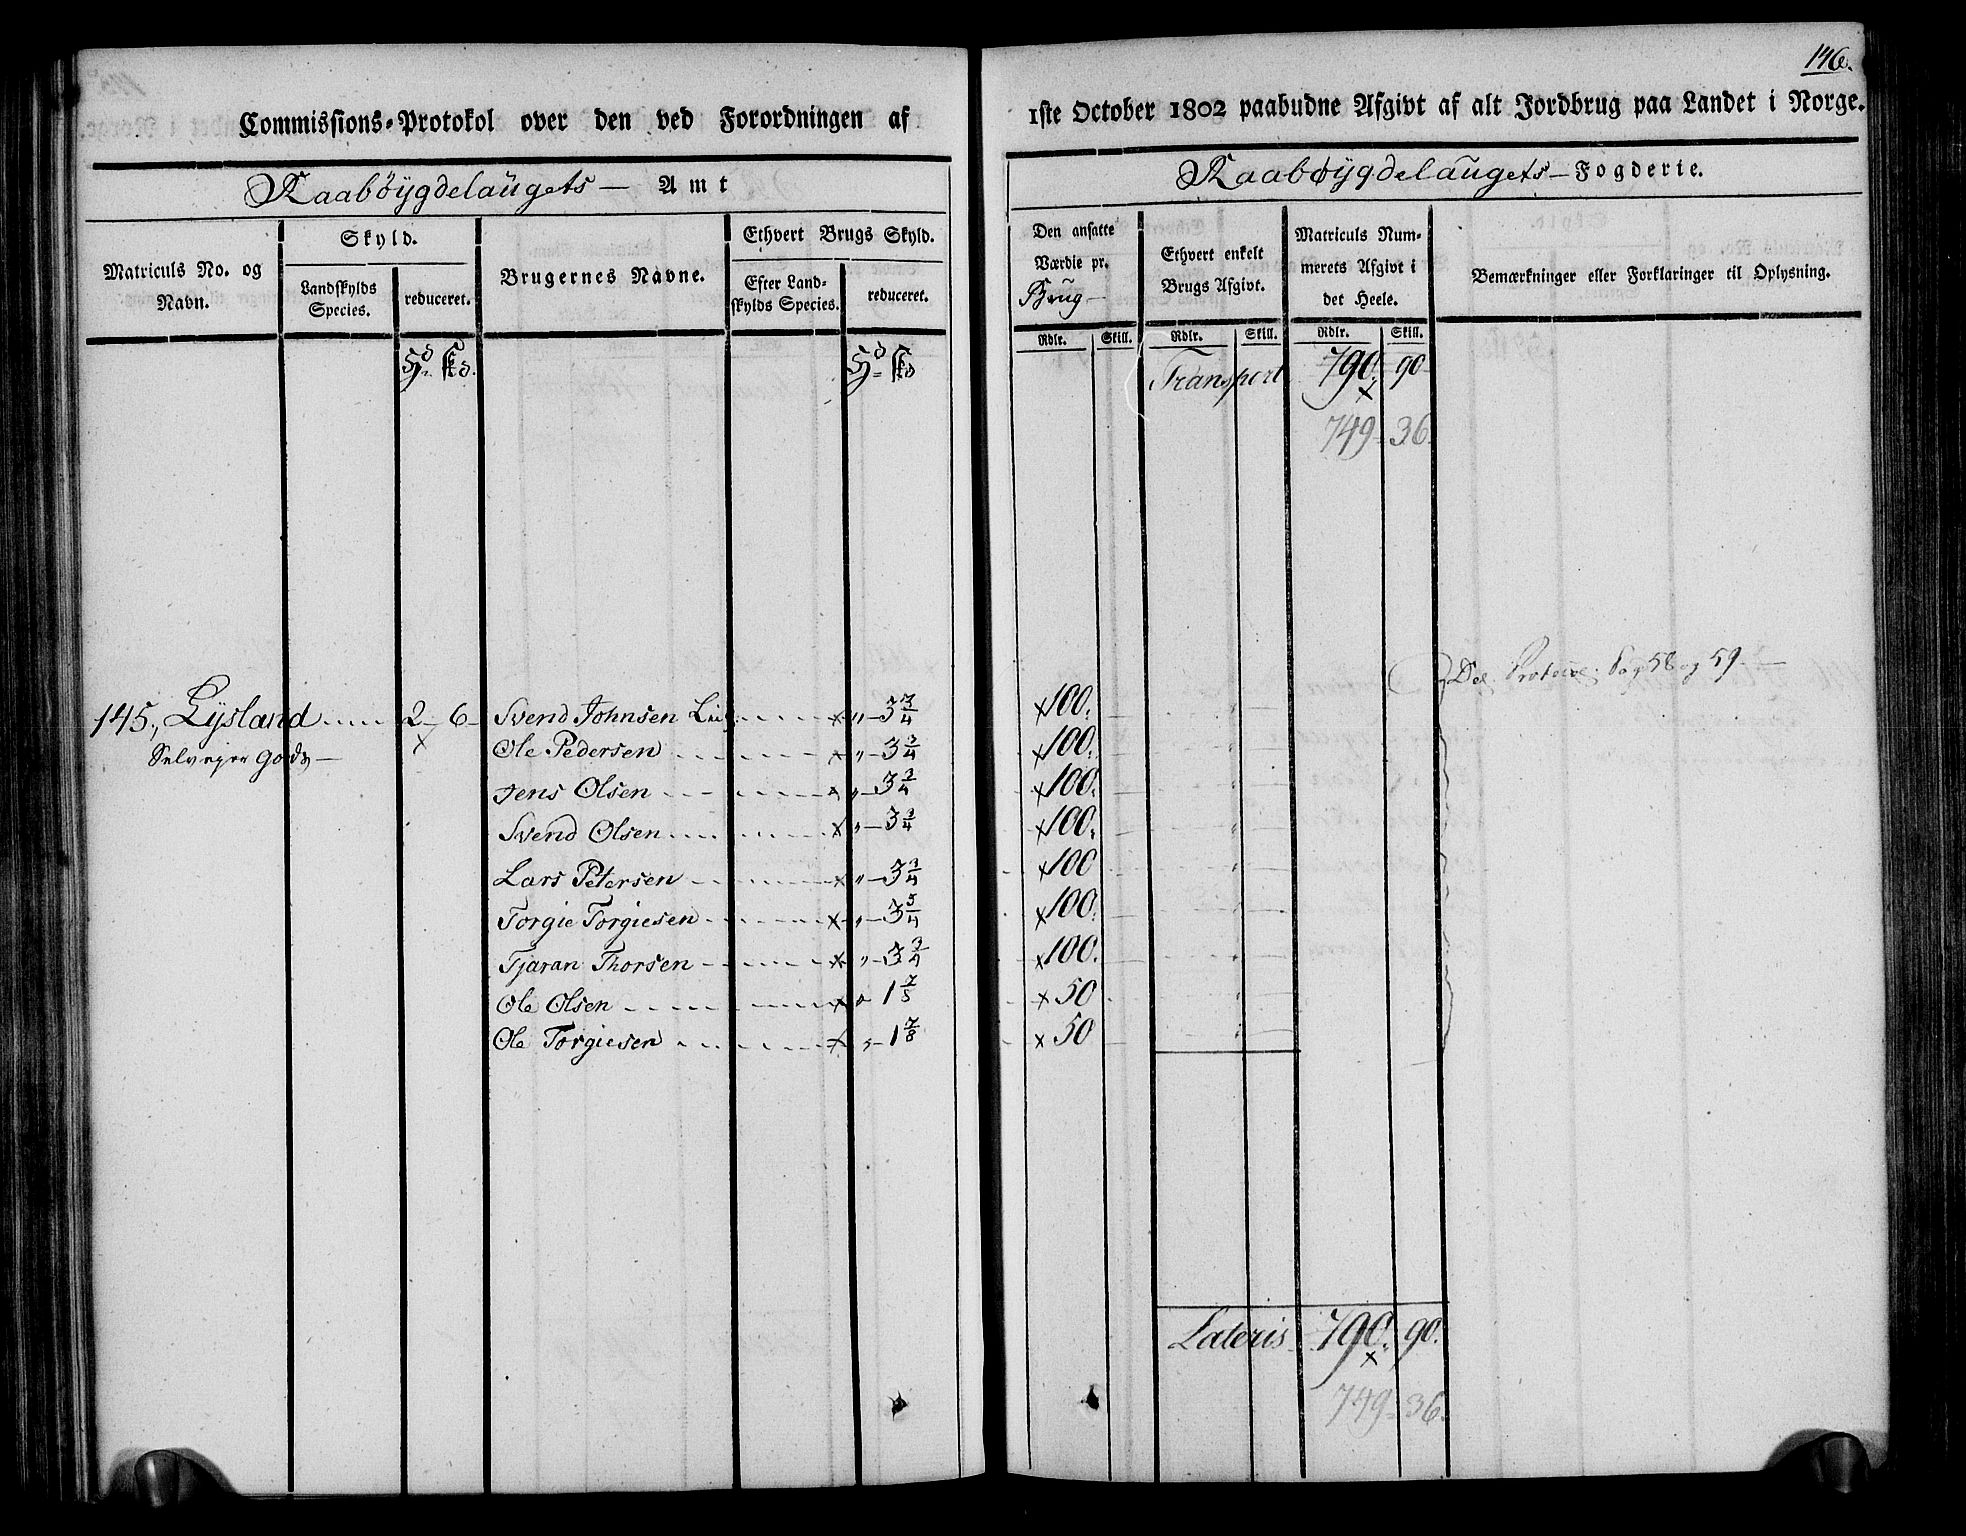 146.
Commissions-Protokol over den ved Forordningen af 1ste October 1802 paabudne Afgivt af alt Jordbrug paa Landet i Norge.
Raabøygdelaugets — Amt
Raabøygdelaugets — Fogderie.
Matriculs No. og Navn.
Skyld.
Landskylds Species.
reduceret.
Brugernes Navne.
Ethvert Brugs Skyld.
Efter Landskylds Species.
reduceret.
Den ansatte Værdie pr. Brug —
Ethvert enkelt Brugs Afgivt.
Matriculs Nummerets Afgivt i det Heele.
Bemærkninger eller Forklaringer til Oplysning.
Rdlr. Skill. Rdlr. Skill. Rdlr. Skill.
Transport 790. 90
749 - 36.
Del. Protocol. Pag 58 og 59. —
145, Lysland 2 - 6 - Svend Johnsen " - 3 3/4 100.
Selveyer Gods —
Ole Pedersen " - 3 3/4 100.
Jens Olsen " - 3 3/4 100.
Svend Olsen " - 3 3/4 100.
Lars Petersen " - 3 3/4 100
Torgie Torgiesen " - 3 3/4 100.
Tjaran Thorsen " - 3 3/4 100.
Ole Olsen 1 50
Ole Torgiesen 1 7/8 50
Lateris 790. 90.
749 - 36.